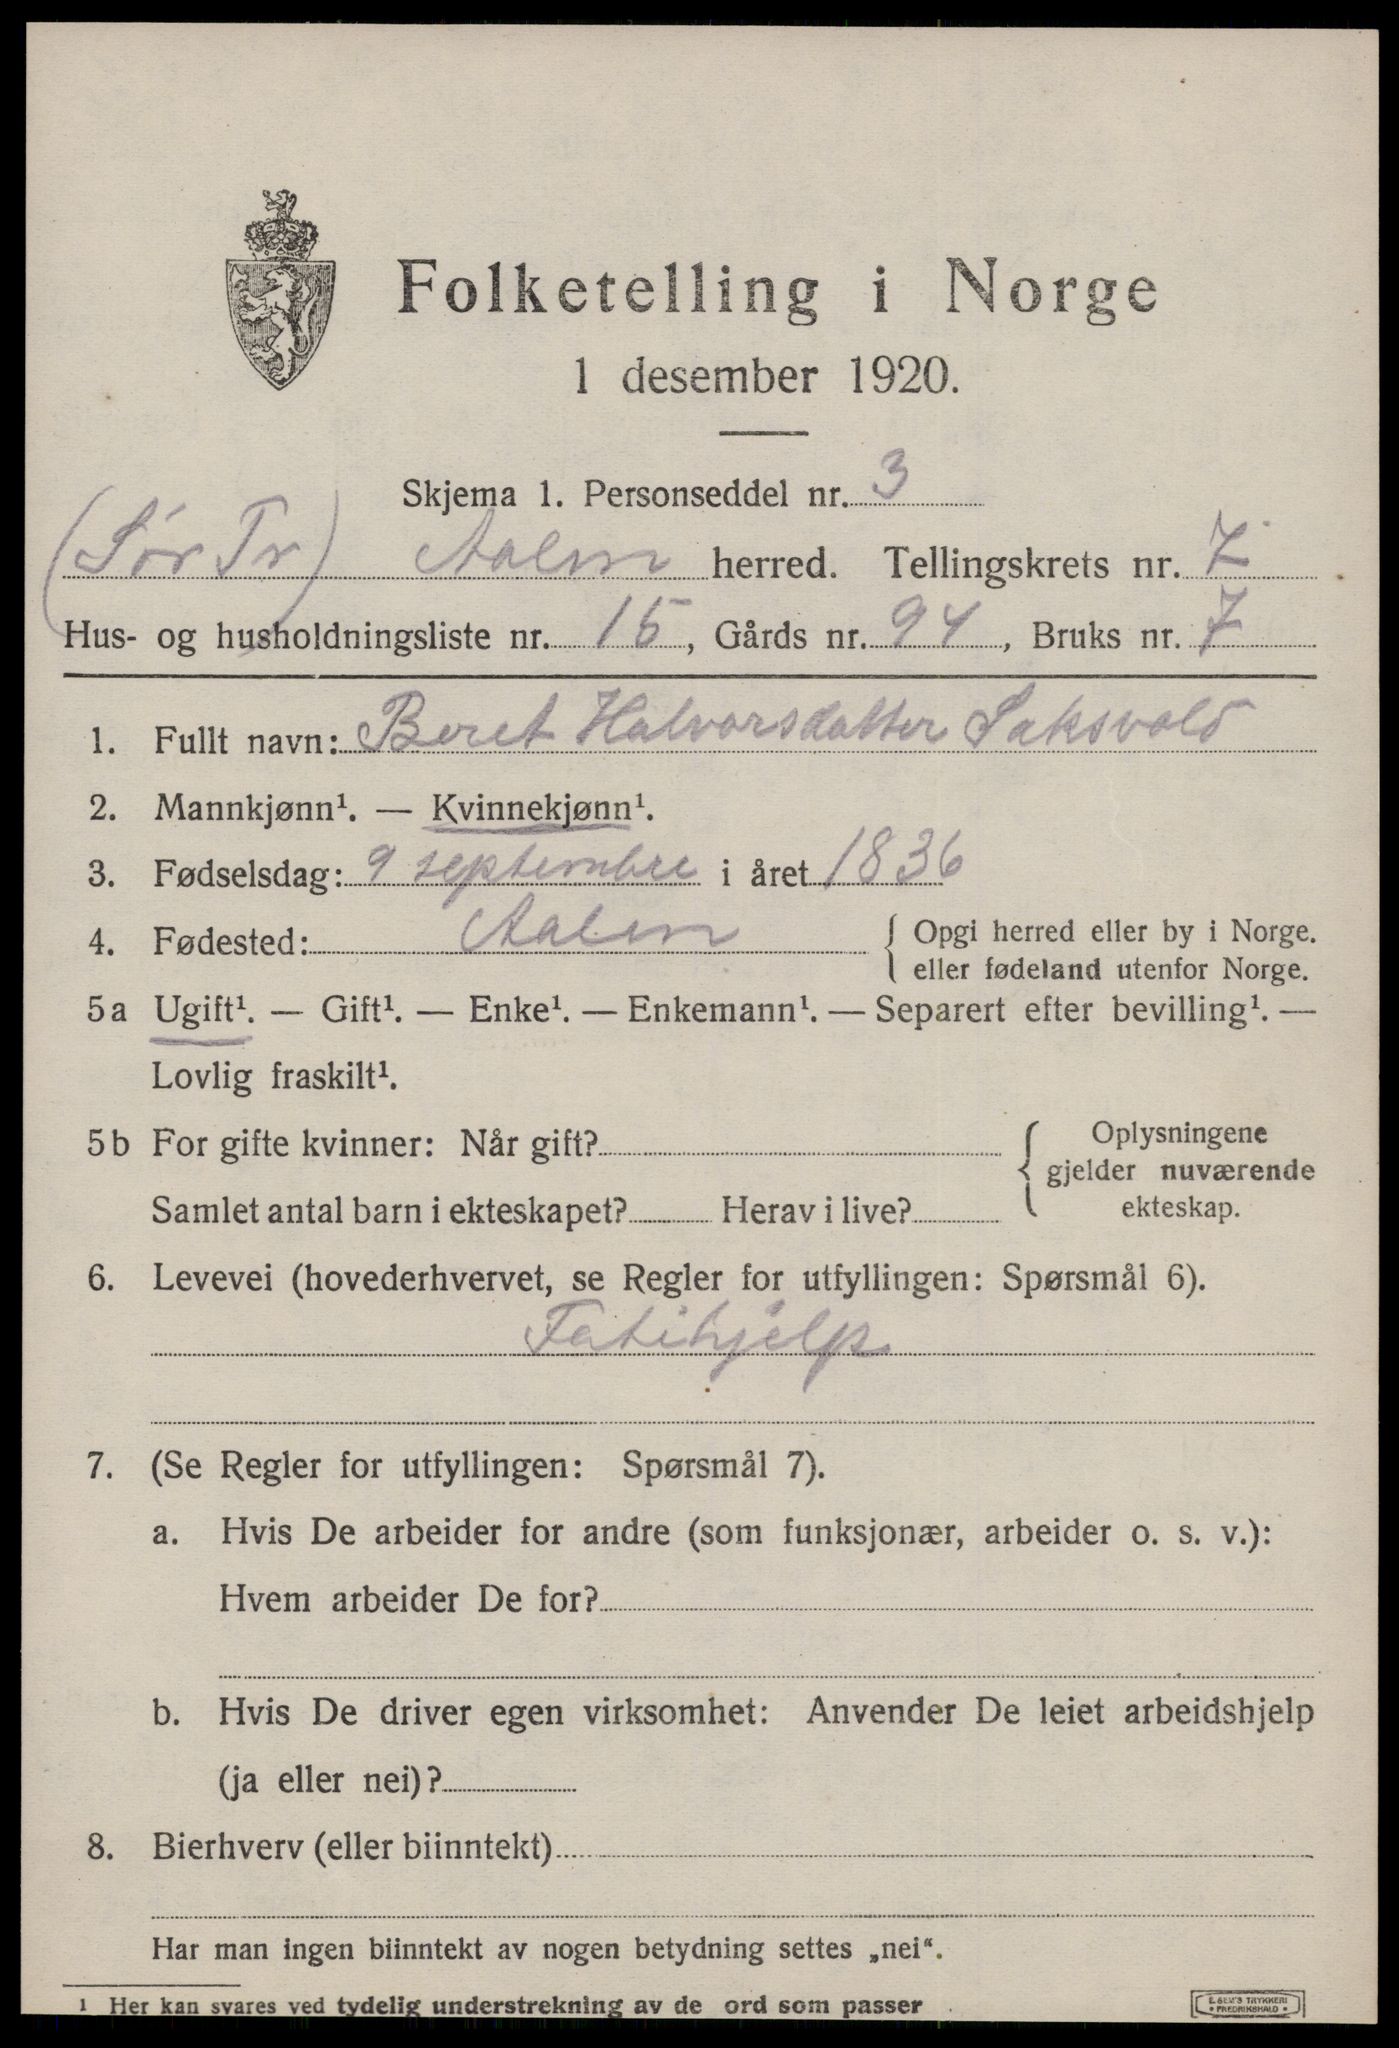 Folketelling i Norge
1 desember 1920.
Skjema 1. Personseddel nr. 3
(Sør Tr) Aalen herred. Tellingskrets nr. 7
Hus- og husholdningsliste nr. 15, Gårds nr. 94, Bruks nr. 7
1. Fullt navn: Beret Halvorsdatter Saksvold
2. Mannkjønn¹. — Kvinnekjønn¹.
3. Fødselsdag: 9 septembre i året 1836
4. Fødested: Aalen { Opgi herred eller by i Norge.
eller fødeland utenfor Norge.
5a Ugift¹. — Gift¹. — Enke¹. — Enkemann¹. — Separert efter bevilling¹. —
Lovlig fraskilt¹.
5b For gifte kvinner: Når gift? { Oplysningene
gjelder nuværende
Samlet antal barn i ekteskapet? Herav i live? ekteskap.
6. Levevei (hovederhvervet, se Regler for utfyllingen: Spørsmål 6).
Fatihjelp
7. (Se Regler for utfyllingen: Spørsmål 7).
a. Hvis De arbeider for andre (som funksjonær, arbeider o. s. v.):
Hvem arbeider De for?
b. Hvis De driver egen virksomhet: Anvender De leiet arbeidshjelp
(ja eller nei)?
8. Bierhverv (eller biinntekt)
Har man ingen biinntekt av nogen betydning settes „nei“.
¹ Her kan svares ved tydelig understrekning av de ord som passer
E. SEM'S TRYKKERI
• FREDRIKSHALD •